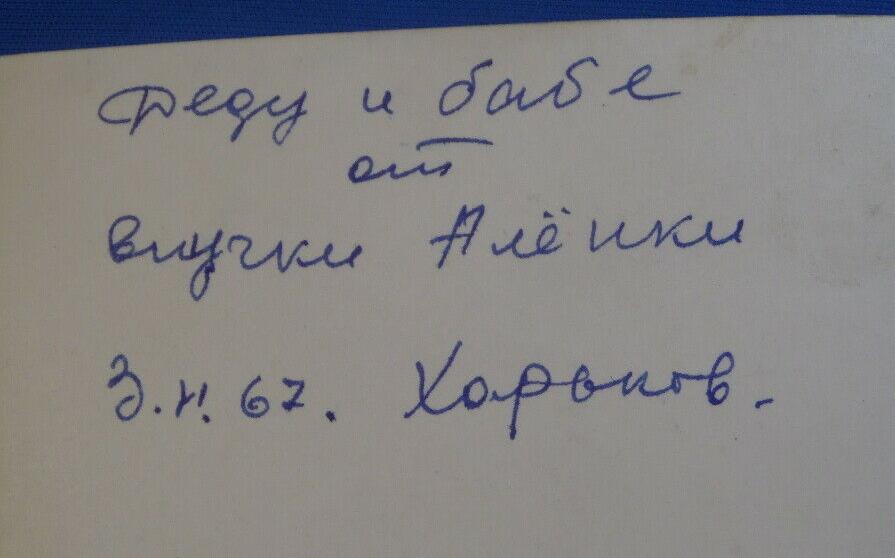 Деду и бабе
от
внучки Алёнки
3.XI.67. Харьков.